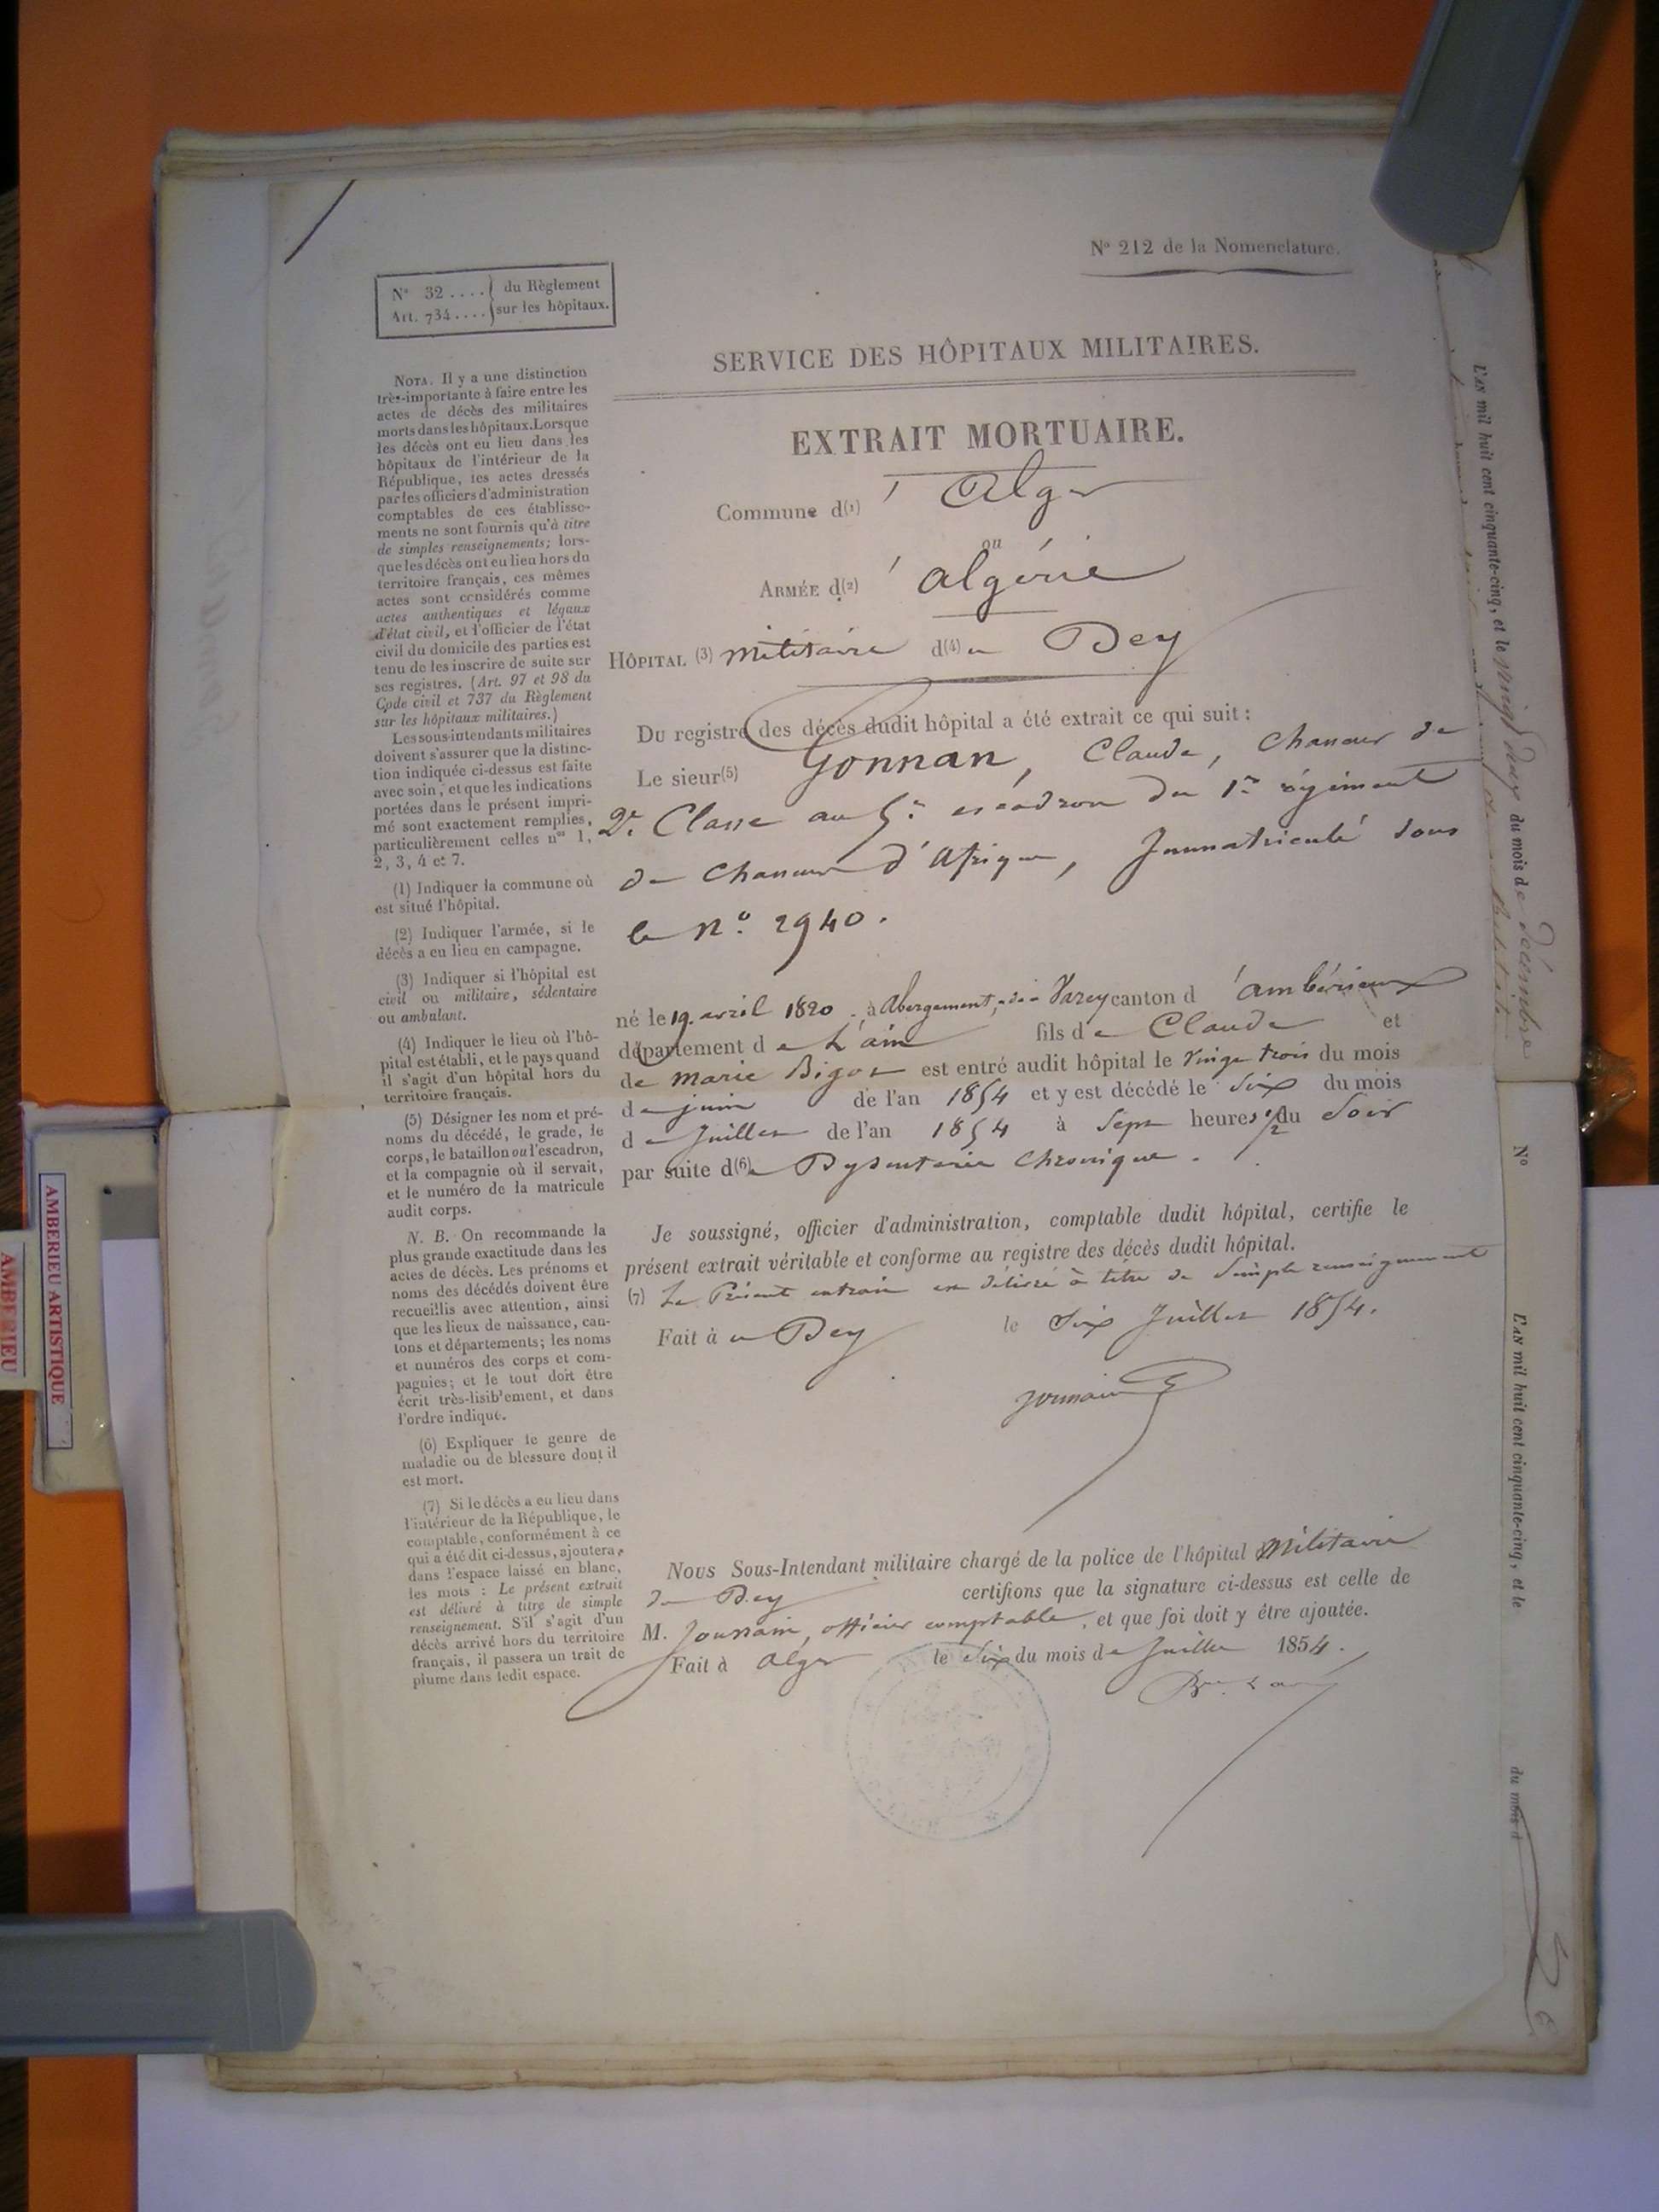 N° 212 de la Nomenclature.
N° 32 .... du Règlement
Art. 734 .... sur les hôpitaux.
SERVICE DES HÔPITAUX MILITAIRES.
EXTRAIT MORTUAIRE.
Commune d(1) ' Alger
ou
ARMÉE d(2) ' algérie
HÔPITAL (3) militaire d(4) u Dey
DU registre des décès dudit hôpital a été extrait ce qui suit :
Le sieur(5) Gonnan, Claude, Chasseur de
2e Classe au 5e escadron du 1er régiment
de Chasseurs d'Afrique, Immatriculé sous
le N° 2940.
né le 19 avril 1820 à Abergement, de Varey canton d 'ambérieux
département de L'ain fils de Claude et
de Marie Bigot est entré audit hôpital le Vingt trois du mois
de juin de l'an 1854 et y est décédé le Six du mois
de Juillet de l'an 1854 à Sept heures 1/2 du Soir
par suite d(6)e Dysenterie Chronique.
Je soussigné, officier d'administration, comptable dudit hôpital, certifie le
présent extrait véritable et conforme au registre des décès dudit hôpital.
(7) Le Présent extrait est délivré à titre de Simple renseignement
Fait à au Dey le Six Juillet 1854.
Joussain
NOUS Sous-Intendant militaire chargé de la police de l'hôpital Militaire
du Dey certifions que la signature ci-dessus est celle de
M. Joussain, officier comptable, et que foi doit y être ajoutée.
Fait à Alger le Six du mois de Juillet 1854.
NOTA. Il y a une distinction
très-importante à faire entre les
actes de décès des militaires
morts dans les hôpitaux. Lorsque
les décès ont eu lieu dans les
hôpitaux de l'intérieur de la
République, les actes dressés
par les officiers d'administration
comptables de ces établisse-
ments ne sont fournis qu'à titre
de simples renseignements; lors-
que les décès ont eu lieu hors du
territoire français, ces mêmes
actes sont considérés comme
actes authentiques et légaux
d'état civil, et l'officier de l'état
civil du domicile des parties est
tenu de les inscrire de suite sur
ses registres. (Art. 97 et 98 du
Code civil et 737 du Règlement
sur les hôpitaux militaires.)
Les sous-intendants militaires
doivent s'assurer que la distinc-
tion indiquée ci-dessus est faite
avec soin, et que les indications
portées dans le présent impri-
mé sont exactement remplies,
particulièrement celles nos 1,
2, 3, 4 et 7.
(1) Indiquer la commune où
est situé l'hôpital.
(2) Indiquer l'armée, si le
décès a eu lieu en campagne.
(3) Indiquer si l'hôpital est
civil ou militaire, sédentaire
ou ambulant.
(4) Indiquer le lieu où l'hô-
pital est établi, et le pays quand
il s'agit d'un hôpital hors du
territoire français.
(5) Désigner les nom et pré-
noms du décédé, le grade, le
corps, le bataillon ou l'escadron,
et la compagnie où il servait,
et le numéro de la matricule
audit corps.
N. B. On recommande la
plus grande exactitude dans les
actes de décès. Les prénoms et
noms des décédés doivent être
recueillis avec attention, ainsi
que les lieux de naissance, can-
tons et départements; les noms
et numéros des corps et com-
pagnies; et le tout doit être
écrit très-lisiblement, et dans
l'ordre indiqué.
(6) Expliquer le genre de
maladie ou de blessure dont il
est mort.
(7) Si le décès a eu lieu dans
l'intérieur de la République, le
comptable, conformément à ce
qui a été dit ci-dessus, ajoutera,
dans l'espace laissé en blanc,
les mots : Le présent extrait
est délivré à titre de simple
renseignement. S'il s'agit d'un
décès arrivé hors du territoire
français, il passera un trait de
plume dans ledit espace.
L'AN mil huit cent cinquante-cinq, et le vingt deux du mois de Décembre
N°
L'AN mil huit cent cinquante-cinq, et le du mois d
AMBERIEU ARTISTIQUE
AMBERIEU